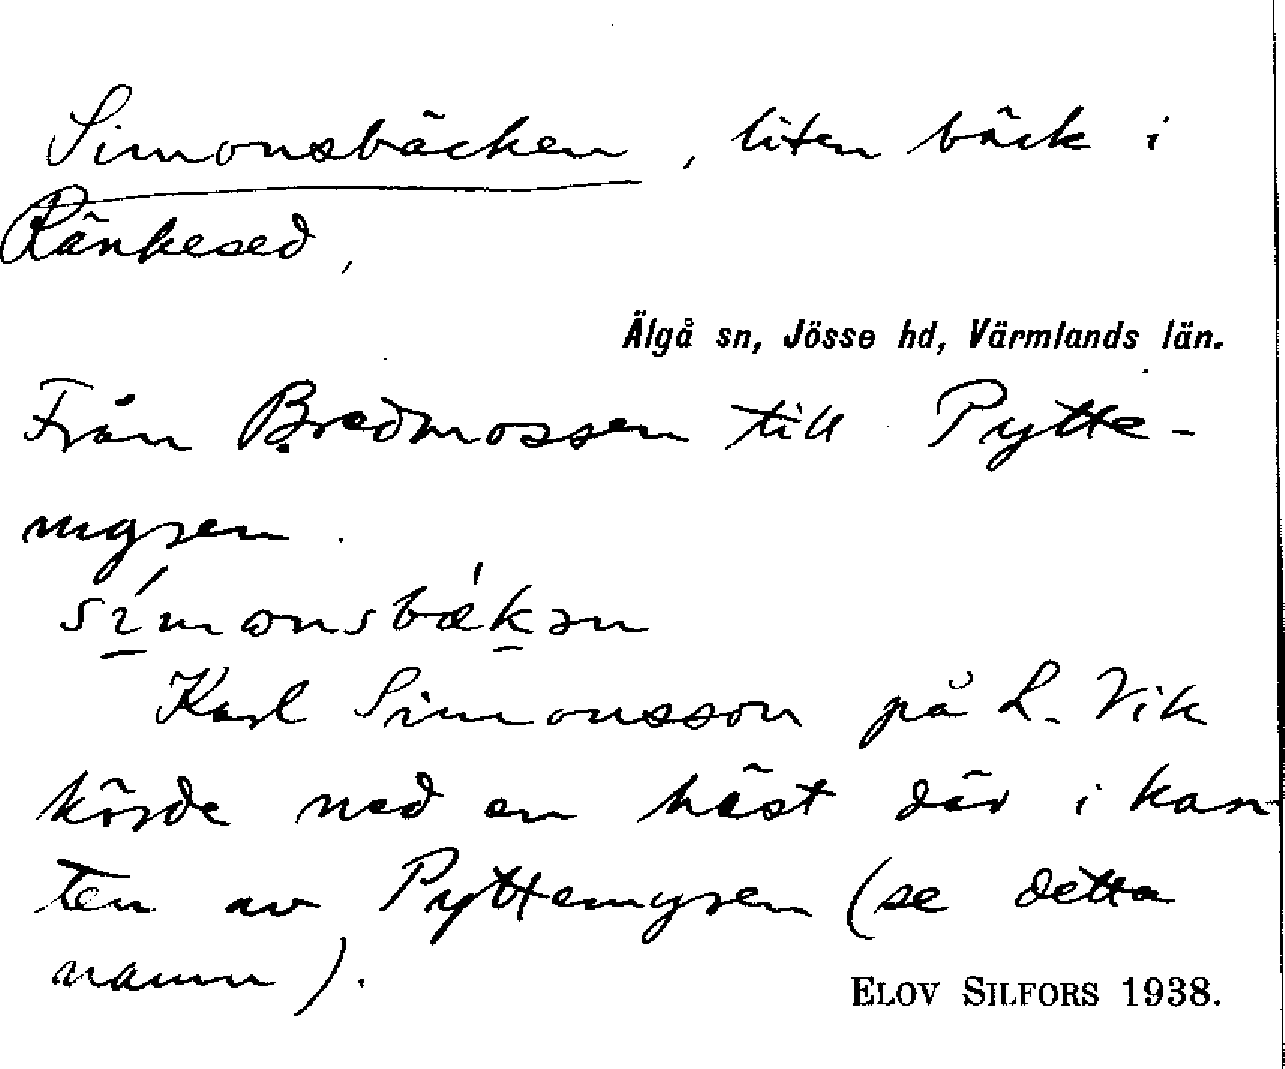 Simonsbäcken, liten bäck i
Ränkesed,
Älgå sn, Jösse hd, Värmlands län.
Från Bredmossen till Pytte-
myren.
Karl Simonsson på L. Vik
körde ned en häst där i kan-
ten av Pyttemyren (se detta
namn).
ELOV SILFORS 1938.